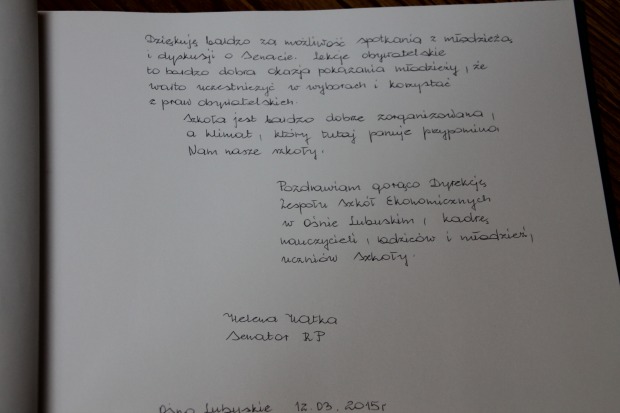 Dziękuję bardzo za możliwość spotkania z młodzieżą
i dyskusji o Senacie. Lekcje obywatelskie
to bardzo dobra okazja pokazania młodzieży, że
warto uczestniczyć w wyborach i korzystać
z praw obywatelskich.
Szkoła jest bardzo dobrze zorganizowana,
a klimat, który tutaj panuje przypomina
Nam nasze szkoły.
Pozdrawiam gorąco Dyrekcję
Zespołu Szkół Ekonomicznych
w Ośnie Lubuskim, kadrę
nauczycieli, rodziców i młodzież,
uczniów szkoły.
Helena Hatka
Senator RP
Ośno Lubuskie 12.03.2015r